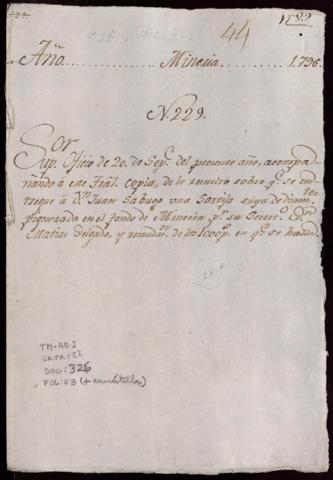 44
1522
Año. Mineria. 1796.
N. 229.
Sor
Sup. Oficio de 20. de Sepe. del presente año, acompa
ñando á este Tral. copia, de lo resuelto sobre qe. se en
tregue á Dn. Juan Sabugo una Sortija suya de diamtes.
pignorada en el fondo de Mineria pr. su Secreto. Dn.
Matias Delgado, y recaudn. de los 1000 p. en qe. se
TM-AD2
CAJA: 22
DOC: 326
FOL: 03 (+ carátula)